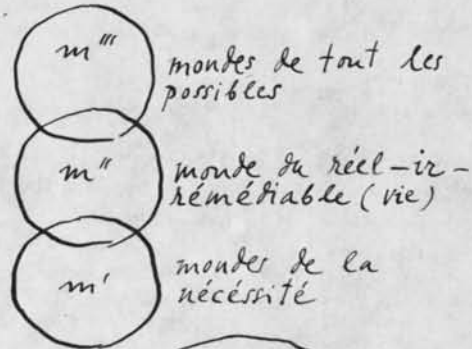 m'''
mondes de tout les
possibles
m''
monde du réel-ir-
rémédiable (vie)
m'
mondes de la
nécéssité